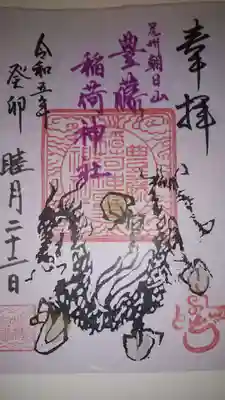 奉拝
尾州朝日山
豊藤
稲荷神社
令和五年
癸卯
睦月二十二日